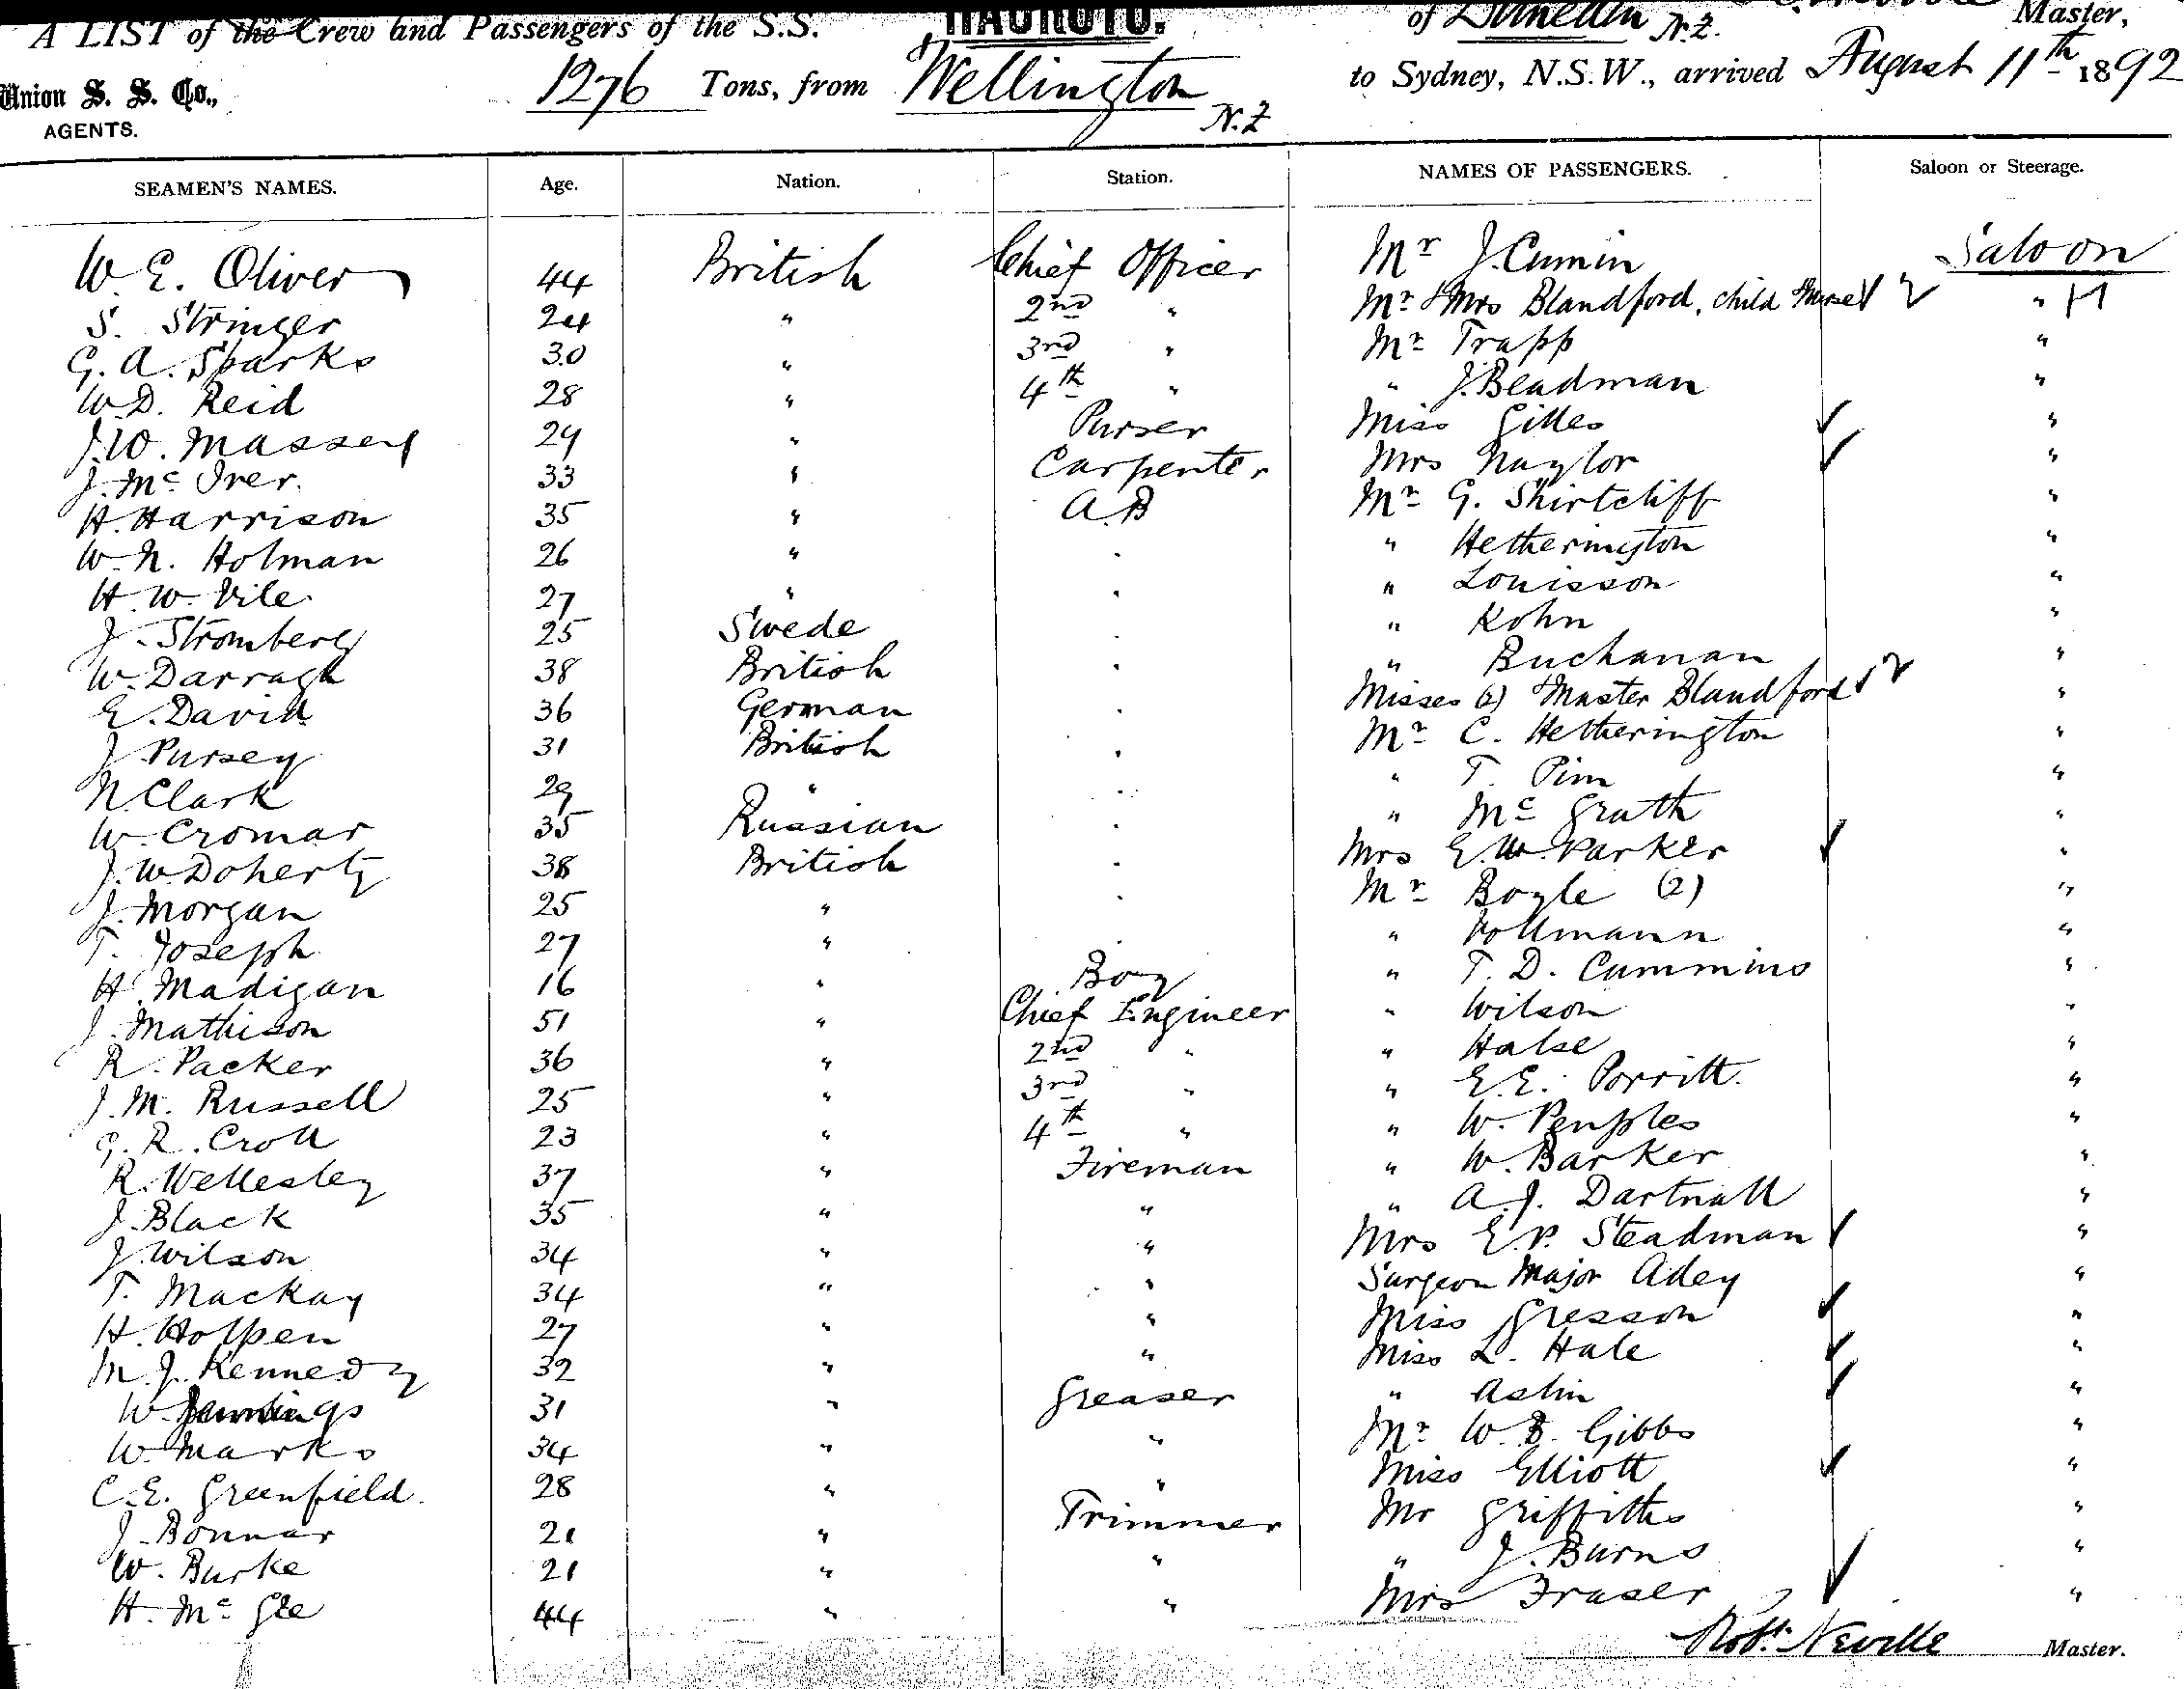 A LIST of the Crew and Passengers of the S.S. HAUROTO. of Dunedin N.Z. Master,
Union S. S. Co., 1276 Tons, from Wellington N.Z to Sydney, N.S.W., arrived August 11th 1892
AGENTS.
SEAMEN'S NAMES. Age. Nation. Station. NAMES OF PASSENGERS. Saloon or Steerage.
W. E. Oliver 44 British Chief Officer Mr J. Cumin Saloon
S. Stringer 24 " 2nd " Mr & Mrs Blandford, child & nurse "
G. A. Sparks 30 " 3rd " Mr Trapp "
W. D. Reid 28 " 4th " " J. Beadman "
J. W. Massey 29 " Purser Miss Gilles "
J. Mc Iver. 33 " Carpenter Mrs Naylor "
H. Harrison 35 " A.B Mr G. Shirtcliff "
W. N. Holman 26 " " " Hetherington "
H. W. Vile 27 " " " Louisson "
J. Stromberg 25 Swede " " Kohn "
W. Darragh 38 British " " Buchanan "
E. David 36 German " Misses (2) & Master Blandford "
J Pursey 31 British " Mr C. Hetherington "
N Clark 29 " " " T. Pim "
W. Cromar 35 Russian " " Mc Grath "
J. W. Doherty 38 British " Mrs E. W. Parker "
J. Morgan 25 " " Mr Boyle (2) "
T. Joseph 27 " " " Vollmann "
H. Madigan 16 " Boy " T. D. Cummins "
J. Mathison 51 " Chief Engineer " Wilson "
R. Packer 36 " 2nd " " Halse "
J. M. Russell 25 " 3rd " " E. E. Porritt. "
G. R. Croll 23 " 4th " " W. Penples "
R. Wellesley 37 " Fireman " W. Barker "
J. Black 35 " " " A. J. Dartnall "
J. Wilson 34 " " Mrs E. P. Steadman "
T. Mackay 34 " " Surgeon Major Adey "
H. Holpen 27 " " Miss Gresson "
M. J. Kennedy 32 " " Miss L. Hale "
W. Jennings 31 " Greaser " Astin "
W. Marks 34 " " Mr W. B. Gibbs "
C. E. Greenfield. 28 " " Miss Elliott "
J. Bonnar 21 " Trimmer Mr Griffiths "
W. Burke 21 " " " J. Burns "
H. Mc Gee 44 " " Mrs Fraser "
Robt. Neville Master.